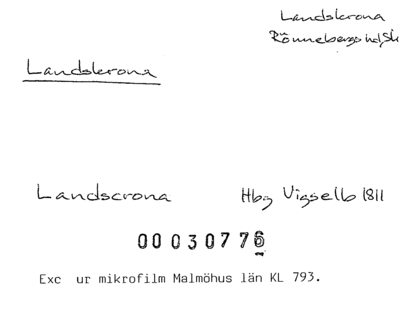 Landskrona
Rönnebergs hd, Sk
Landskrona
Landscrona Hbg Vigselb 1811
00030776
Exc ur mikrofilm Malmöhus län KL 793.